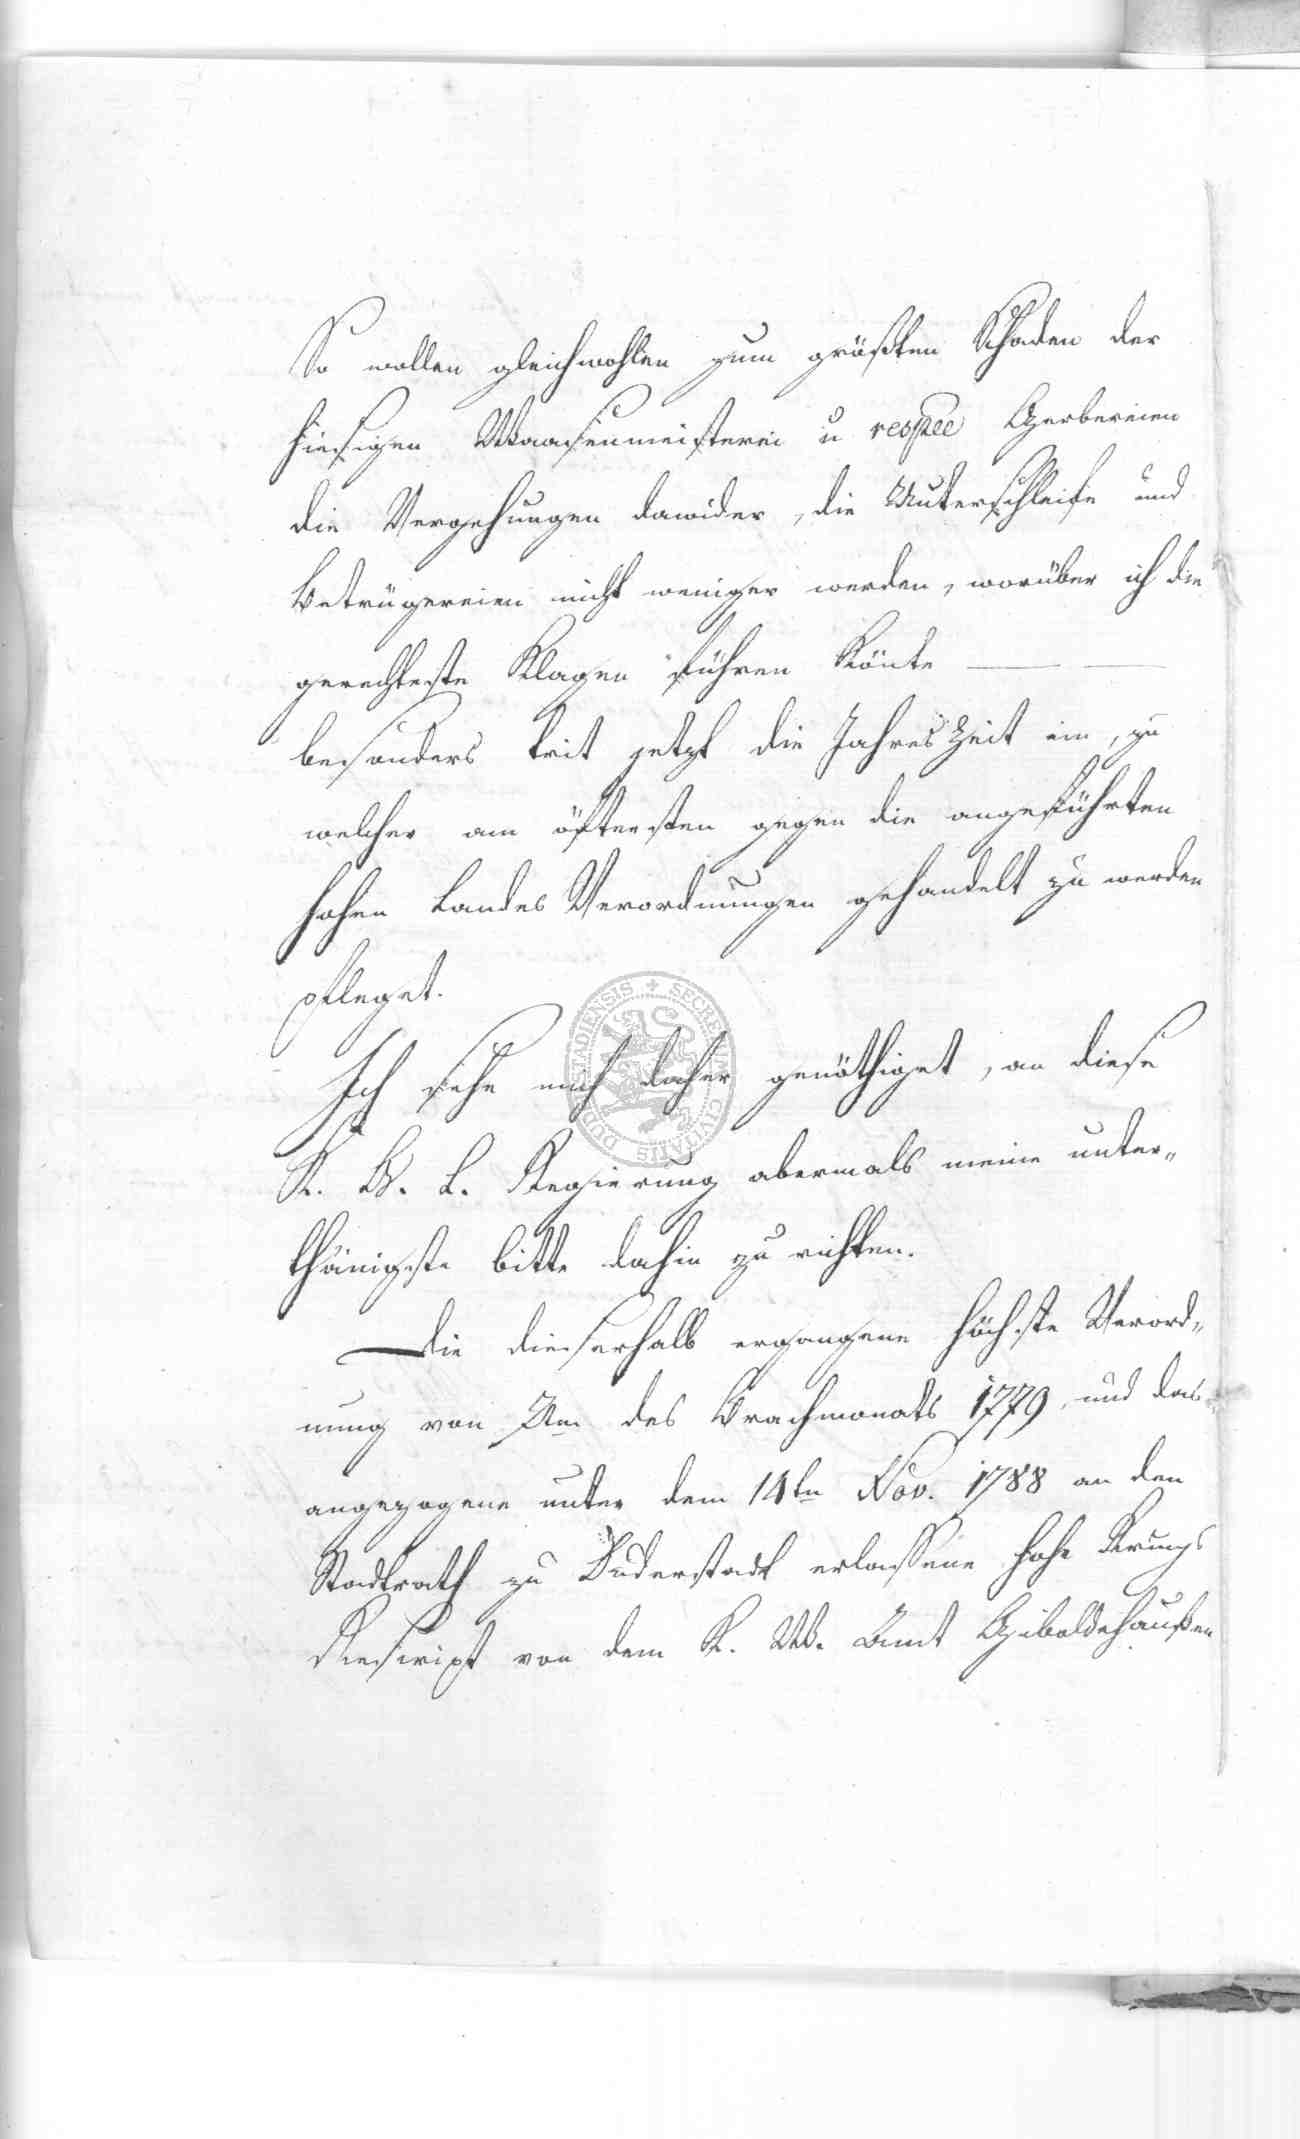 So wollen gleichwohlen zum größten Schaden der
hiesigen Waasenmeisterei u respee Gerbereien
die Vergehungen dawider, die Unterschleife und
Betrügereien nicht weniger werden, worüber ich die
gerechteste Klagen führen könte
besonders trit jetzt die Jahres Zeit ein, zu
welcher am öftersten gegen die angeführten
hohen Landes Verordnungen gehandelt zu werden
pfleget.
Ich sehe mich daher genöthiget, an diese
K. G. L. Regierung abermals meine unter„
thänigste bitte dahin zu richten.
Die dieserhalb ergangene höchste Verord„
nung von des Brachmonats 1779 und das
angezogene unter dem 14tn Nov. 1788 an den
Stadtrath zu Duderstadt erlassene hohe
Rescript von dem K. W. Amt Giboldehaußen
DUDERSTADIENSIS + SECRETUM CIVITATIS